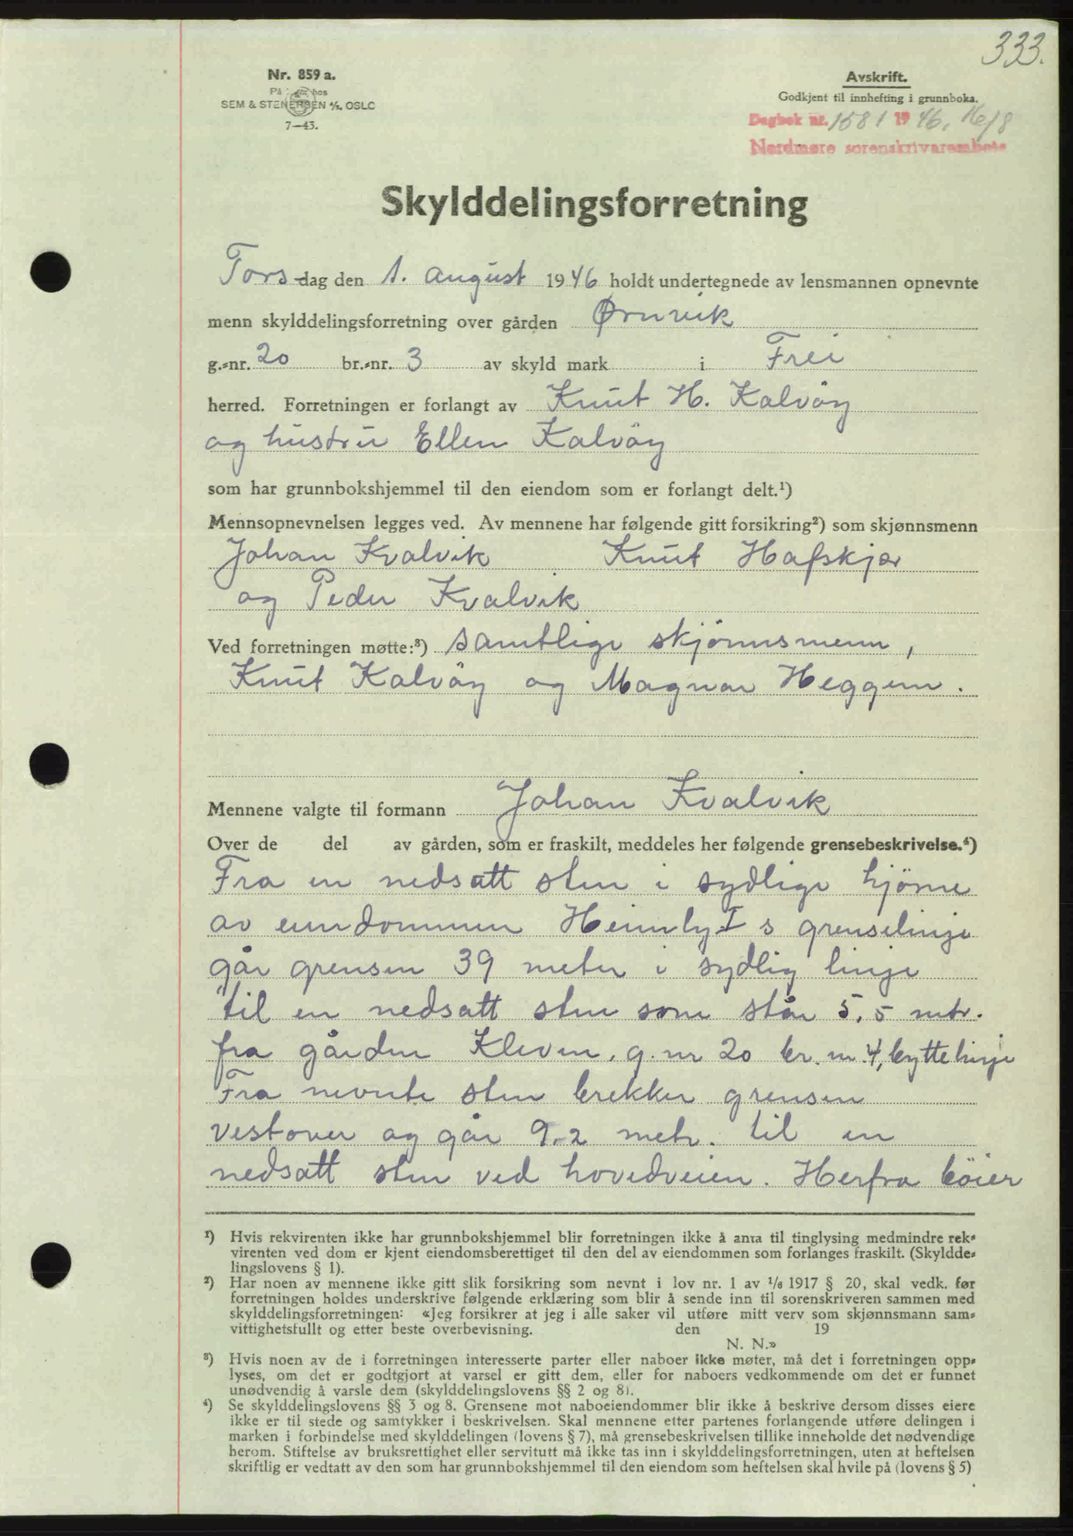 333.
Nr. 859 a.
SEM & STENERSEN A/S. OSLO
7—43.
Avskrift.
Godkjent til innhefting i grunnboka.
Dagbok nr. 1581 19 46, 16/8
Nordmøre sorenskriverembete
Skylddelingsforretning
Tors-dag den 1. august 1946 holdt undertegnede av lensmannen opnevnte
menn skylddelingsforretning over gården Ørnvik
g.-nr. 20 br.-nr. 3 av skyld mark i Frei
herred. Forretningen er forlangt av Knut H. Kalvöy
og hustru Ellen Kalvöy
som har grunnbokshjemmel til den eiendom som er forlangt delt.¹)
Mennsopnevnelsen legges ved. Av mennene har følgende gitt forsikring²) som skjønnsmenn
Johan Kvalvik Knut Hafskjær
og Peder Kvalvik
Ved forretningen møtte:³) samtlige skjönnsmenn,
Knut Kalvöy og Magnar Heggem.
Mennene valgte til formann Johan Kvalvik
Over de del av gården, som er fraskilt, meddeles her følgende grensebeskrivelse.⁴)
Fra en nedsatt sten i sydlige hjörne
av eiendommen Heimly I s grenselinje
går grensen 39 meter i sydlig linje
til en nedsatt sten som står 5,5 mtr.
fra gården Kleven, g. nr 20 br. nr. 4, byttelinje
Fra nevnte sten brekker grensen
vestover og går 9.2 metr. til en
nedsatt sten ved hovedveien. Herfra böier
¹) Hvis rekvirenten ikke har grunnbokshjemmel blir forretningen ikke å anta til tinglysing medmindre rek-
virenten ved dom er kjent eiendomsberettiget til den del av eiendommen som forlanges fraskilt. (Skyldde-
lingslovens § 1).
²) Har noen av mennene ikke gitt slik forsikring som nevnt i lov nr. 1 av 1/6 1917 § 20, skal vedk. før
forretningen holdes underskrive følgende erklæring som blir å sende inn til sorenskriveren sammen med
skylddelingsforretningen: «Jeg forsikrer at jeg i alle saker vil utføre mitt verv som skjønnsmann sam-
vittighetsfullt og etter beste overbevisning. den 19
N. N.»
³) Hvis noen av de i forretningen interesserte parter eller naboer ikke møter, må det i forretningen opp-
lyses, om det er godtgjort at varsel er gitt dem, eller for naboers vedkommende om det er funnet
unødvendig å varsle dem (skylddelingslovens §§ 2 og 8).
⁴) Se skylddelingslovens §§ 3 og 8. Grensene mot naboeiendommer blir ikke å beskrive dersom disses eiere
ikke er til stede og samtykker i beskrivelsen. Skal mennene etter partenes forlangende utføre delingen i
marken i forbindelse med skylddelingen (lovens § 7), må grensebeskrivelsen tillike inneholde det nødvendige
herom. Stiftelse av bruksrettighet eller servitutt må ikke tas inn i skylddelingsforretningen, uten at heftelsen
skriftlig er vedtatt av den som har grunnbokshjemmel til den eiendom som heftelsen skal hvile på (lovens § 5)